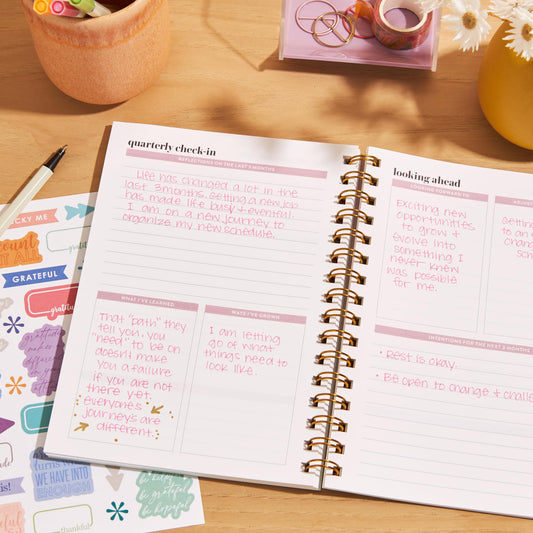 quarterly check-in
REFLECTIONS ON THE LAST 3 MONTHS
Life has changed a lot in the
last 3 months. Getting a new job
has made life busy + eventful.
I am on a new journey to
organize my new schedule.
WHAT I'VE LEARNED
That "path" they
tell you, you
"need" to be on
doesn't make
you a failure
if you are not
there yet.
everyone's
journeys are
different.
WAYS I'VE GROWN
I am letting
go of what
things need to
look like.
looking ahead
LOOKING FORWARD TO
Exciting new
opportunities
to grow +
evolve into
something I
never knew
was possible
for me.
INTENTIONS FOR THE NEXT 3 MONTHS
• Rest is okay.
• Be open to change + challe
GRATEFUL
turns
WE HAVE INTO
ENOUGH
be grateful
be hopeful
thankful